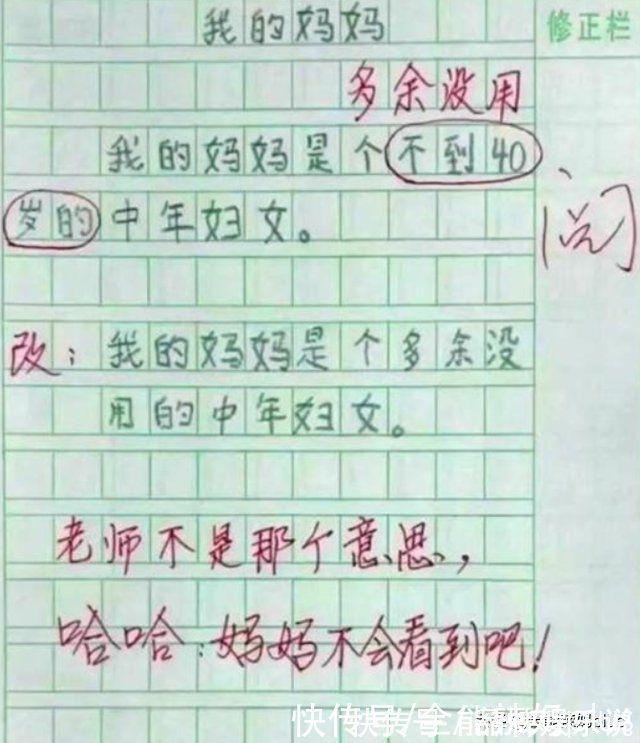 我的妈妈
修正栏
多余没用
我的妈妈是个不到40
岁的中年妇女。
阅
改：我的妈妈是个多余没
用的中年妇女。
老师不是那个意思，
哈哈：妈妈不会看到吧！
快传号/